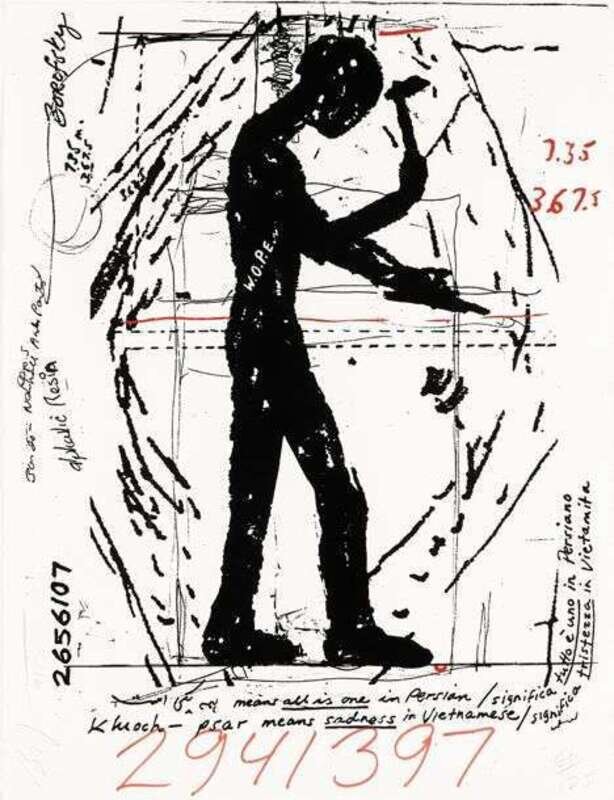 Borofsky
7.35 m.
367.5
3675
7.35
367.5
W.O.P.E.
Resin
2656107
means all is one in Persian / significa tutto è uno in Persiano
Khoch - psar means sadness in Vietnamese / significa tristezza in Vietamita
2941397